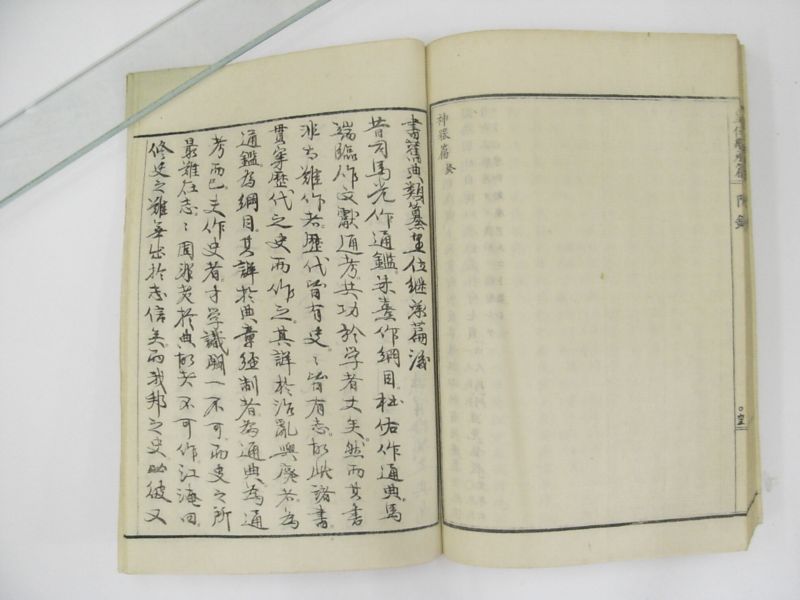 皇位継承篇 附録
書舊典類纂皇位継承篇後
昔司馬光作通鑑。朱熹作綱目。杜佑作通典。馬
端臨作文獻通考。其功於学者大矣。然而其書
非甚難作者。歴代皆有史。〻皆有志。故此諸書。
貫穿歴代之史而作之。其詳於治亂興廢者。為
通鑑為綱目。其詳於典章経制者。為通典為通
考而已。夫作史者。才学識闕一不可。而史之所
最難在志。〻固非老於典故者不可作。江淹曰
修史之難無出於志。信矣。而我邦之史。比彼又